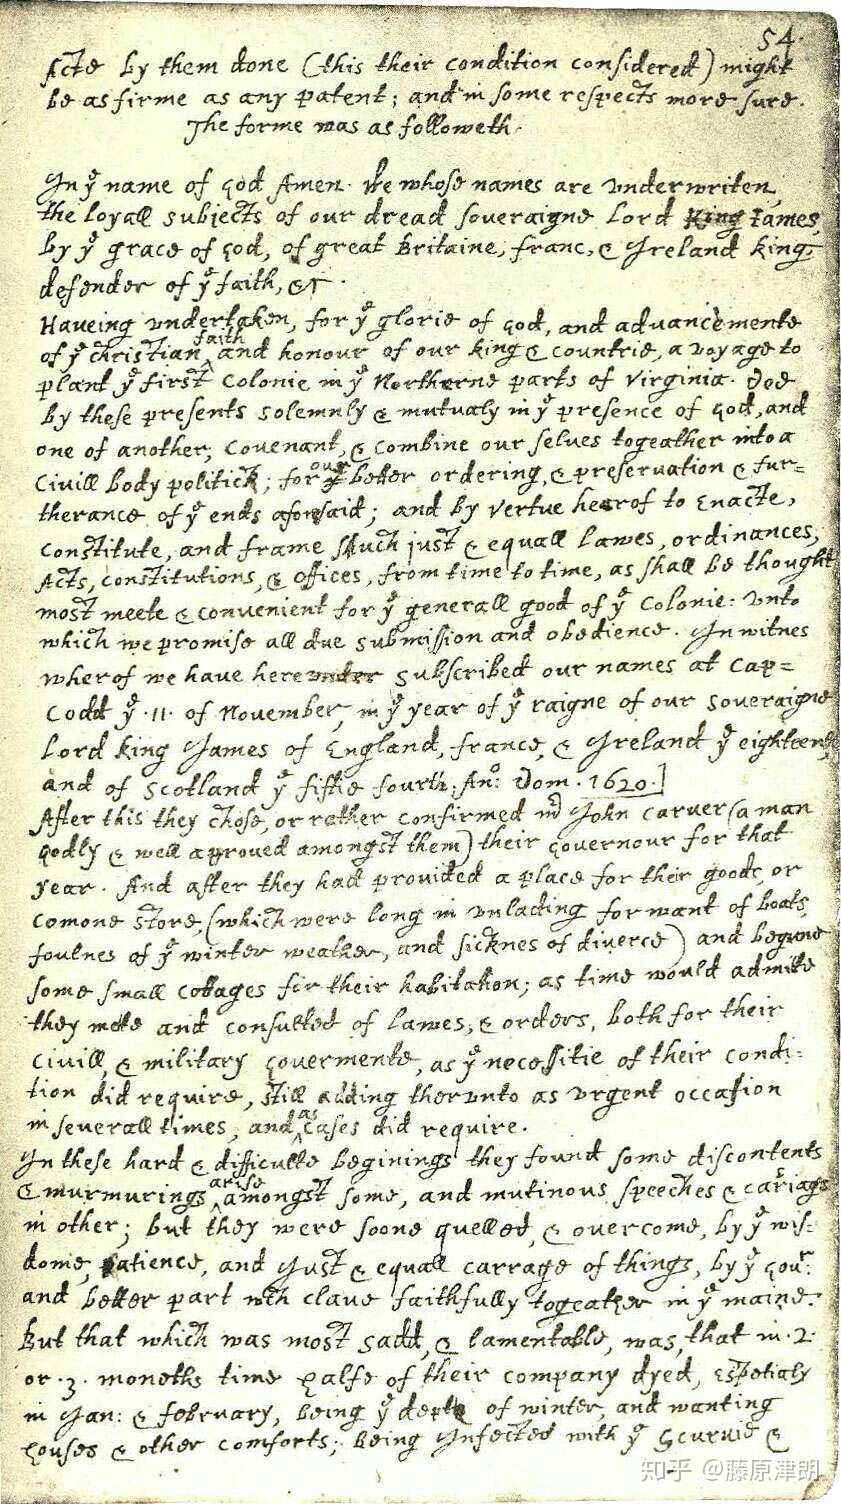 54.
Acts by them done (this their condition considered) might
be as firme as any patent; and in some respects more sure.
The forme was as followeth.
In yͤ name of God Amen. We whose names are underwriten,
the loyall subjects of our dread soveraigne Lord King James,
by yͤ grace of God, of great Britaine, franc, & Ireland king,
defender of yͤ faith, &c.
Haveing undertaken, for yͤ glorie of God, and advancemente
of yͤ christian faith and honour of our king & countrie, a voyage to
plant yͤ first colonie in yͤ Northerne parts of Virginia. Doe
by these presents solemnly & mutualy in yͤ presence of God, and
one of another; covenant, & combine our selves togeather into a
Civill body politick; for our better ordering, & preservation & fur=
therance of yͤ ends aforsaid; and by vertue hearof to Enacte,
constitute, and frame shuch just & equall lawes, ordinances,
Acts, constitutions, & offices, from time to time, as shall be thought
most meete & convenient for yͤ generall good of yͤ Colonie: unto
which we promise all due submission and obedience. In witnes
wherof we have hereunder subscribed our names at Cap=
Codd yͤ .11. of November, in yͤ year of yͤ raigne of our soveraigne
Lord king James of England, france, & Ireland yͤ eighteenth
and of Scotland yͤ fiftie fourth. Anº: Dom. 1620.]
After this they chose, or rather confirmed mʳ John Carver (a man
godly & well approved amongst them) their Governour for that
year. And after they had provided a place for their goods, or
comone store, (which were long in unlading for want of boats,
foulnes of yͤ winter weather, and sicknes of diverce) and begune
some small cottages for their habitation; as time would admitte
they mete and consulted of lawes, & orders, both for their
civill, & military Govermente, as yͤ necessitie of their condi=
tion did require, still adding therunto as urgent occasion
in severall times, and as cases did require.
In these hard & difficulte beginings they found some discontents
& murmurings arise amongst some, and mutinous speeches & cariags
in other; but they were soone quelled, & overcome, by yͤ wis=
dome, patience, and just & equall carrage of things, by yͤ Govʳ:
and better part wᶜʰ clave faithfully togeather in yͤ maine.
But that which was most sadd, & lamentable, was, that in .2.
or .3. moneths time halfe of their company dyed, espetialy
in Jan: & february, being yͤ depth of winter, and wanting
houses & other comforts; being Infected with yͤ Scurvie &
知乎 @藤原津朗